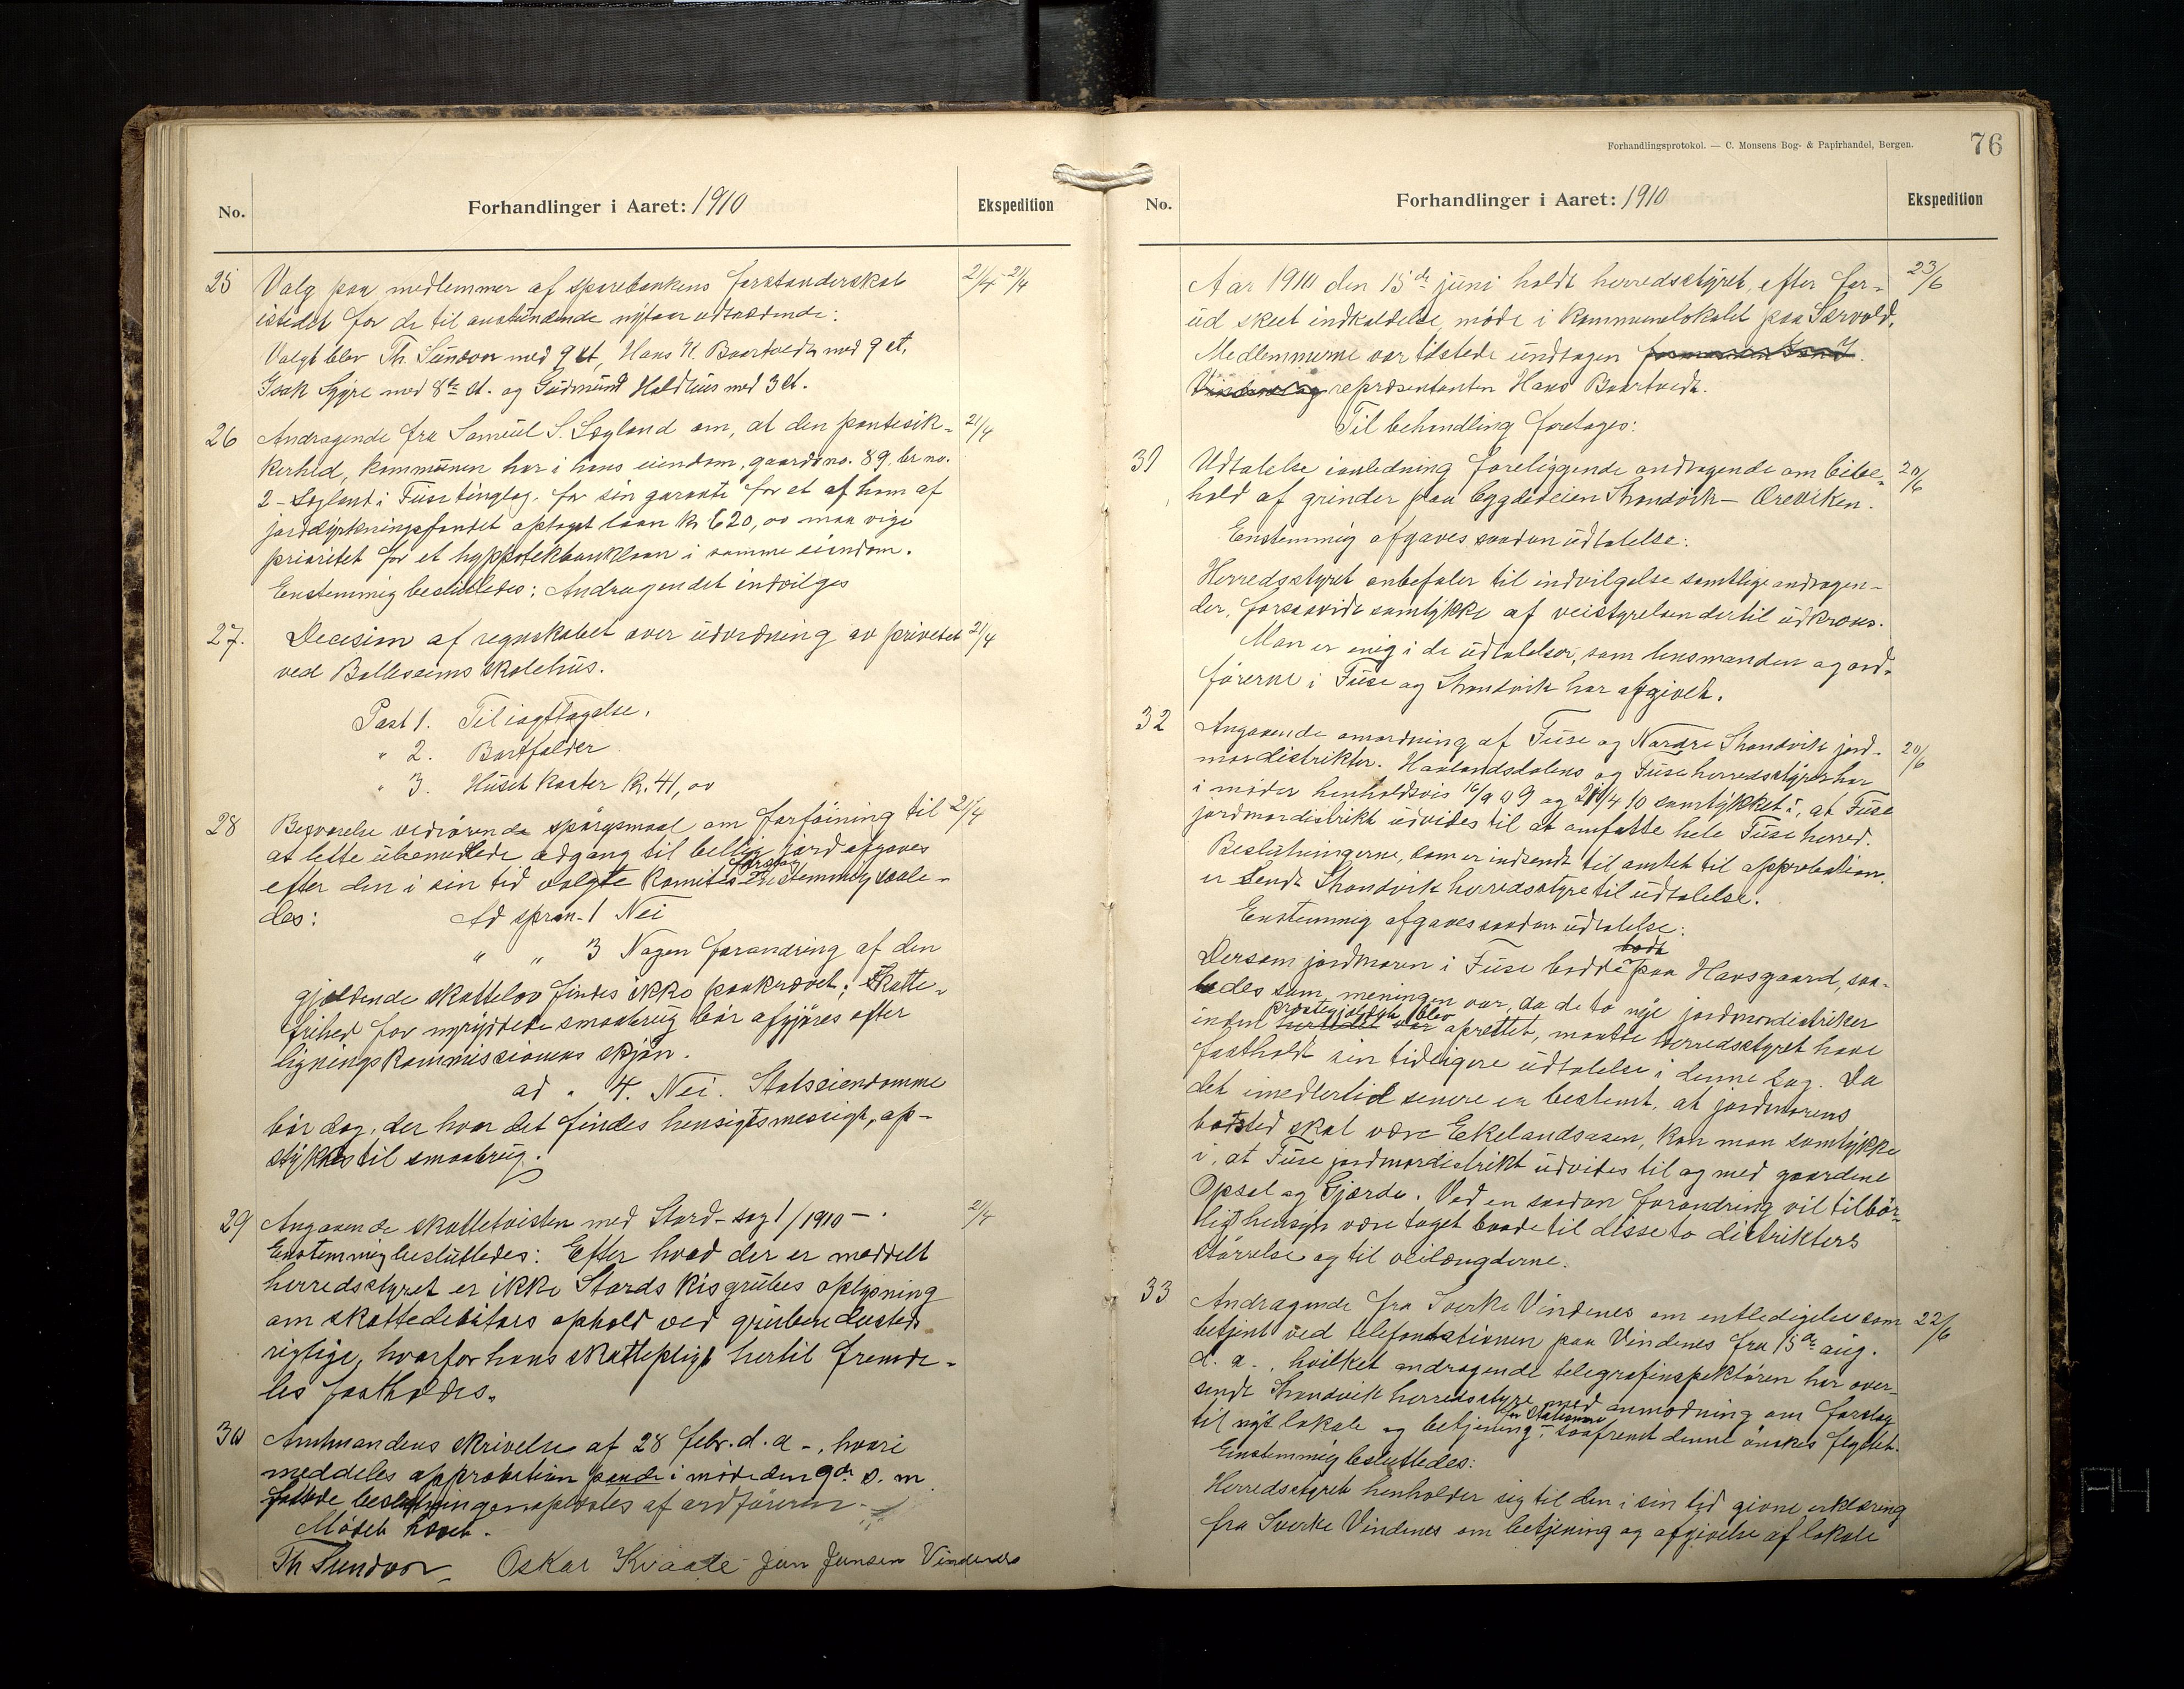 No.
Forhandlinger i Aaret: 1910
Ekspedition
25 Valg paa medlemmer af sparebankens forstanderskab 21/4 21/4
istedet for de til anstundende nytaar udtrædende:
Valgt blev Th. Sundvor med 9 st, Hans H. Baartvedt med 9 st,
Isak Lygre med 8te st. og Gudmund Holdhus med 3 st.
26 Andragende fra Samuel S. Løgland om, at den pantesik- 21/4
kerhed, kommunen har i hans eiendom, gaardsno. 89, br. no.
2 - Løgland i Fuse tinglag, for sin garanti for et af ham af
jorddyrkningsfondet optaget laan kr. 620,00 maa vige
prioritet for et hypotekbanklaan i samme eiendom.
Enstemmig besluttedes: Andragendet indvilges
27. Decision af regnskabet over udvidning av privetet 21/4
ved Bolleseims skolehus.
Post 1. Til iagttagelse.
" 2. Bortfalder.
" 3. Huset koster kr. 41,00
28 Besvarelse vedrørende spørgsmaal om forføining til 21/4
at lette ubemidlede adgang til billig jord afgaves
efter den i sin tid valgte komites forslag Enstemmig saale-
des: Ad spm. 1 Nei
" " 3 Nogen forandring af den
gjældende skattelov findes ikke paakrævet; Skatte-
frihed for nyryddede smaabrug bør afgjøres efter
ligningskommissionens skjøn.
ad " 4. Nei. Statseiendomme
bør dog, der hvor det findes hensigtsmessigt, op-
stykkes til smaabrug.
29 Angaaende skattetvisten med Stord - sag 1/1910 - . 21/4
Enstemmig besluttedes: Efter hvad der er meddelt
herredsstyret er ikke Stords Kisgrubes oplysning
om skattedebitors ophold ved gruben dersteds
rigtige, hvorfor hans skattepligt hertil fremde-
les fastholdes.
30 Amtmandens skrivelse af 28 febr. d. a -, hvori
meddeles approbation paa de i møde den 9de s. m.
fattede beslutninger oplæstes af ordføreren.
Mødet hævet.
Th Sundvor Oskar Kvaale Jan Jansen Vindenes
Forhandlingsprotokol. — C. Monsens Bog- & Papirhandel, Bergen.
76
No.
Forhandlinger i Aaret: 1910
Ekspedition
Aar 1910 den 15de juni holdt herredsstyret, efter for- 23/6
ud skeet indkaldelse, møde i kommunelokalet paa Særvold.
Medlemmerne var tilstede undtagen formanden Jan J.
Vindenes og repræsentanten Hans Baartvedt.
Til behandling foretages:
31 Udtalelse i anledning foreliggende andragende om bibe- 20/6
hold af grinder paa bygdeveien Strandvik - Øreviken.
Enstemmig afgaves saadan udtalelse:
Herredsstyret anbefaler til indvilgelse samtlige andragen-
der, forsaavidt samtykke af veistyrelsen dertil udkræves.
Man er enig i de udtalelser, som lensmanden og ord-
førerne i Fuse og Strandvik har afgivet.
32 Angaaende omordning af Fuse og Nordre Strandvik jord- 20/6
mordistrikter. Haalandsdalens og Fuse herredsstyrer har
i møder henholdsvis 16/9 09 og 21/4 10 samtykket i, at Fuse
jordmordistrikt udvides til at omfatte hele Fuse herred.
Beslutningerne, som er indsendt til amtet til approbation,
er sendt Strandvik herredsstyre til udtalelse.
Enstemmig afgaves saadan udtalelse:
bodt
Dersom jordmoren i Fuse bodde paa Havsgaard, saa-
ledes som meningen var, da de to nye jordmordistrikter
præstegjeldet blev
inden herredet var oprettet, maatte herredsstyret have
fastholdt sin tidligere udtalelse i denne sag. Da
det imedlertid senere er bestemt, at jordmorens
bosted skal være Ekelandsosen, kan man samtykke
i, at Fuse jordmordistrikt udvides til og med gaardene
Opsal og Gjærde. Ved en saadan forandring vil tilbør-
ligt hensyn være taget baade til disse to distrikters
størrelse og til veilængderne.
33 Andragende fra Sverke Vindenes om entledigelse som 22/6
betjent ved telefonstationen paa Vindenes fra 15de aug.
d. a., hvilket andragende telegrafinspektøren har over-
sendt Strandvik herredsstyre med anmodning om forslag
for stationen
til nyt lokale og betjening - saafremt denne ønskes flyttet.
Enstemmig besluttedes:
Herredsstyret henholder sig til den i sin tid givne erklæring
fra Sverke Vindenes om betjening og afgivelse af lokale
A4